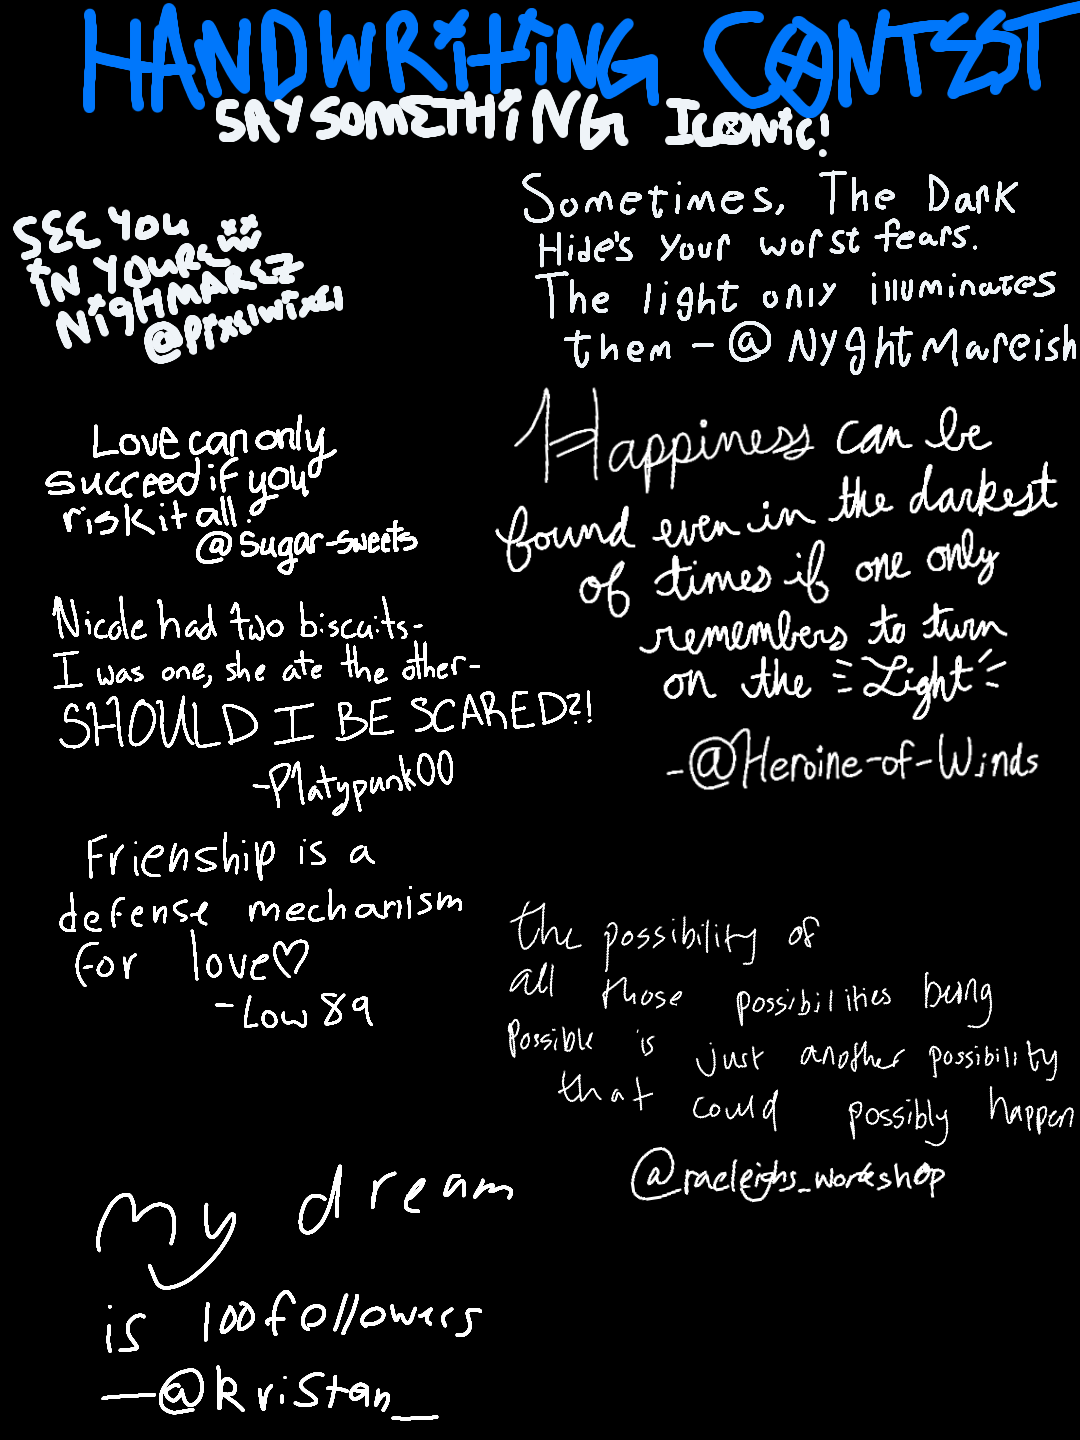 HANDWRITING CONTEST
SAY SOMETHING ICONIC!
SEE YOU
IN YOURE
NIGHTMAREZ
@pixslwixsl
Sometimes, The Dark
Hide's your worst fears.
The light only illuminates
them - @NyghtMareish
Love can only
succeed if you
risk it all.
@Sugar-sweets
Happiness can be
found even in the darkest
of times if one only
remembers to turn
on the Light
-@Heroine-of-Winds
Nicole had two biscuits-
I was one, she ate the other-
SHOULD I BE SCARED?!
-Platypunk00
Frienship is a
defense mechanism
for love♡
-Low89
the possibility of
all those possibilities being
possible is just another possibility
that could possibly happen
@raeleighs_workshop
My dream
is 100 followers
—@kristan_